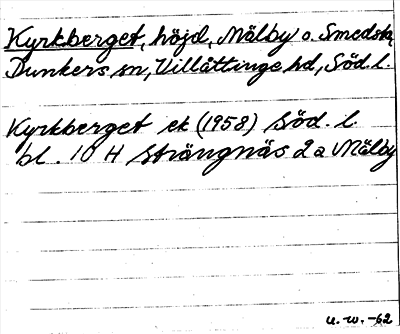 Kyrkberget, höjd, Mälby o. Smedsta,
Dunkers sn, Villåttinge hd, Söd. l.
Kyrkberget ek (1958) Söd. l.
bl. 10 H Strängnäs 2 a Mälby
u. w. -62